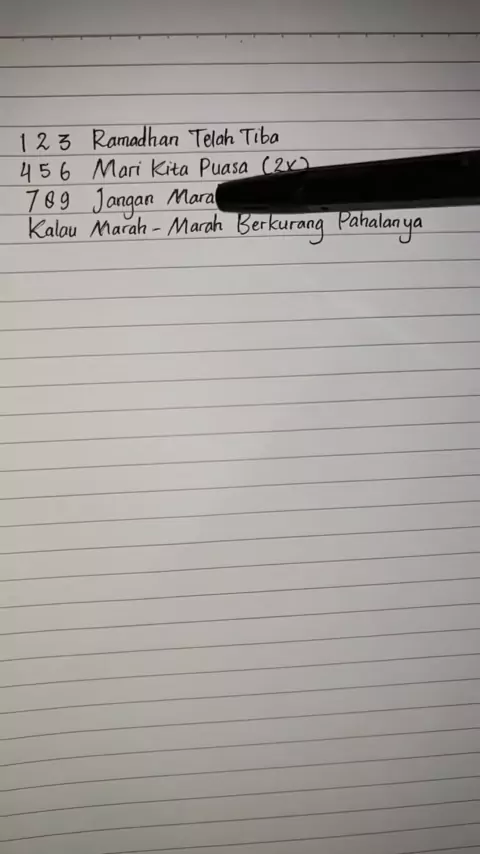 1 2 3 Ramadhan Telah Tiba
4 5 6 Mari Kita Puasa (2x)
7 8 9 Jangan Mara
Kalau Marah - Marah Berkurang Pahalanya